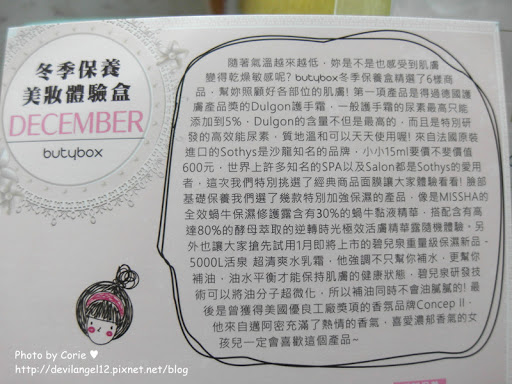 冬季保養
美妝體驗盒
DECEMBER
butybox
隨著氣溫越來越低，妳是不是也感受到肌膚
變得乾燥敏感呢? butybox冬季保養盒精選了6樣商
品，幫妳照顧好各部位的肌膚! 第一項產品是得過德國護
膚產品獎的Dulgon護手霜，一般護手霜的尿素最高只能
添加到5%，Dulgon的含量不但是最高的，而且是特別研
發的高效能尿素，質地溫和可以天天使用喔! 來自法國原裝
進口的Sothys是沙龍知名的品牌，小小15ml要價不斐價值
600元，世界上許多知名的SPA以及Salon都是Sothys的愛用
者，這次我們特別挑選了經典商品面膜讓大家體驗看看! 臉部
基礎保養我們選了幾款特別加強保濕的產品，像是MISSHA的
全效蝸牛保濕修護露含有30%的蝸牛黏液精華，搭配含有高
達80%的酵母萃取的逆轉時光極效活膚精華露隨機體驗。另
外也讓大家搶先試用1月即將上市的碧兒泉重量級保濕新品-
5000L活泉 超清爽水乳霜，他強調不只幫你補水，更幫你
補油，油水平衡才能保持肌膚的健康狀態，碧兒泉研發技
術可以將油分子超微化，所以補油同時不會油膩膩的! 最
後是曾獲得美國優良工廠獎項的香氛品牌Concep II，
他來自邁阿密充滿了熱情的香氣，喜愛濃郁香氣的女
孩兒一定會喜歡這個產品~
Photo by Corie ♥
http://devilangel12.pixnet.net/blog